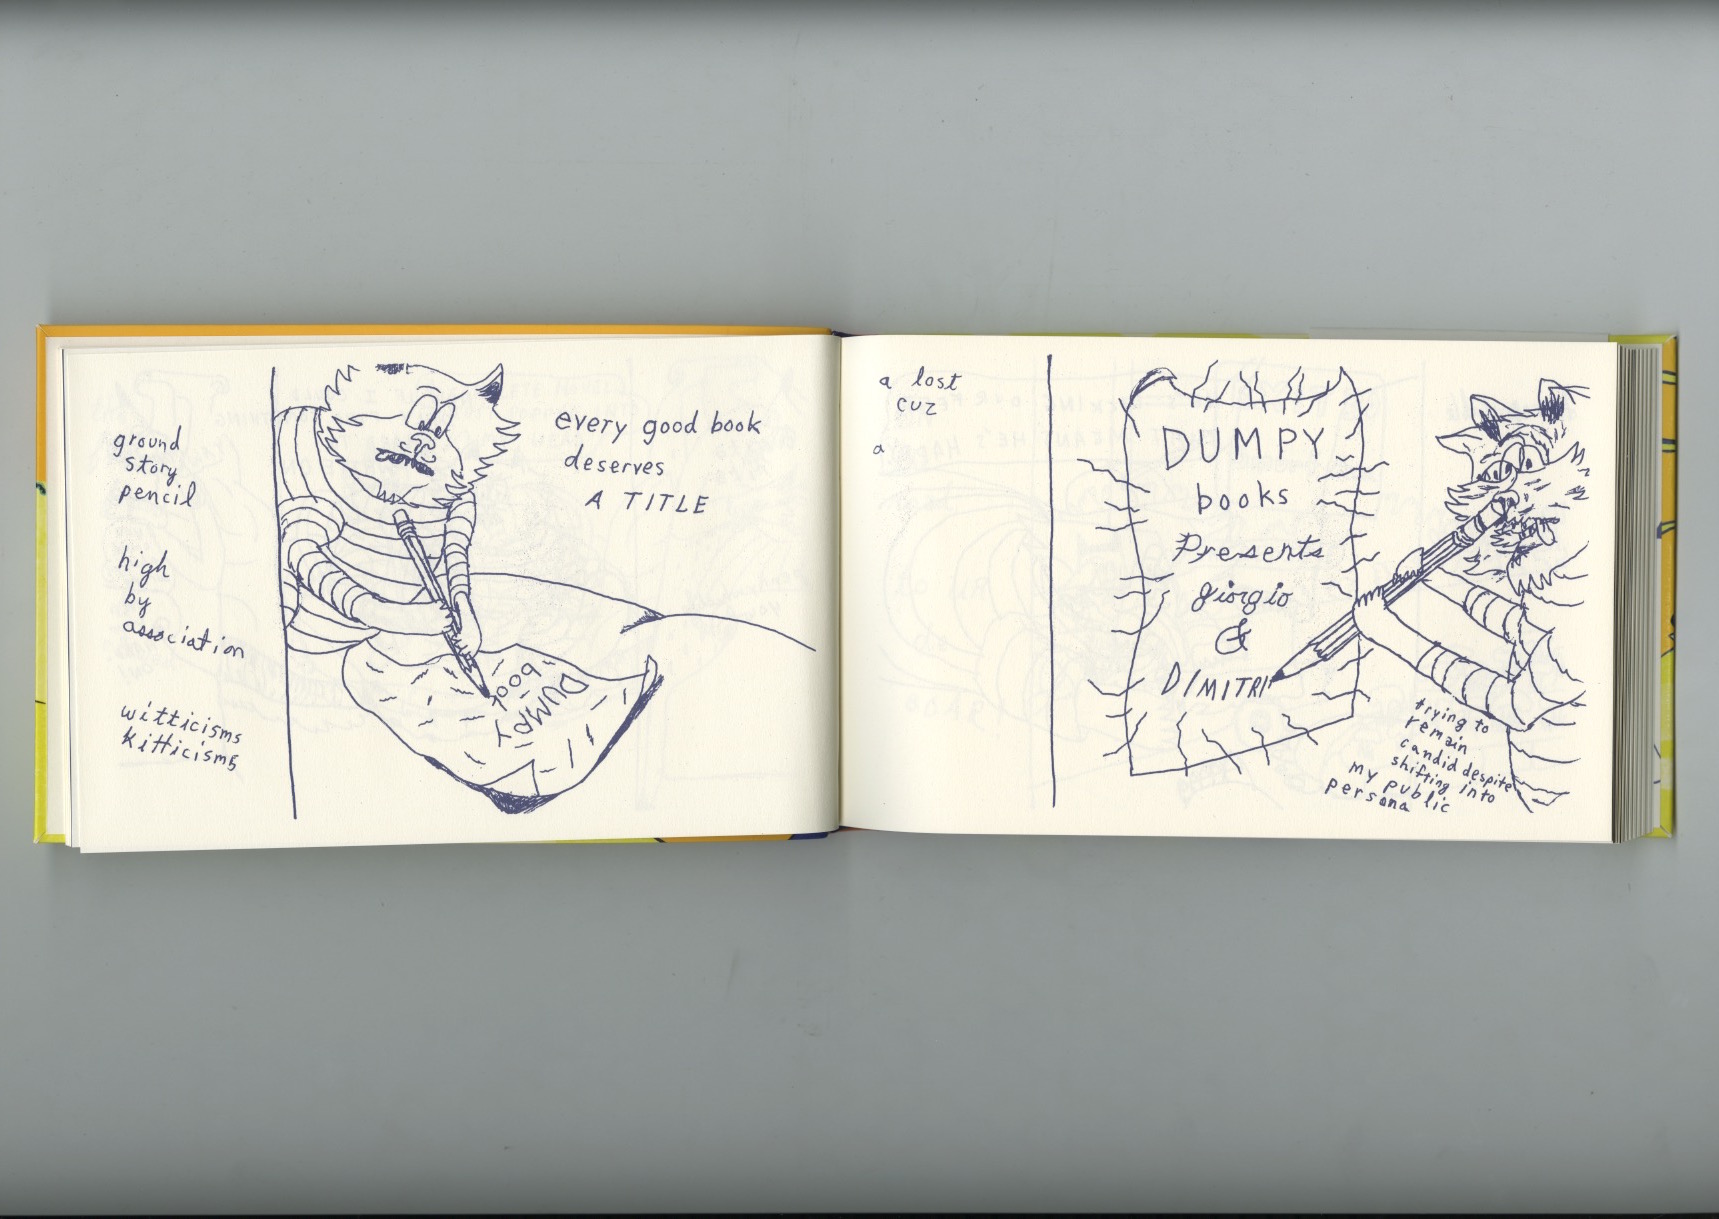 ground
story
pencil
high
by
association
witticisms
kitticisms
every good book
deserves
A TITLE
DUMPY
boo
a lost
cuz
a
DUMPY
books
Presents
giorgio
&
DIMITRI
trying to
remain
candid despite
shifting into
my public
persona